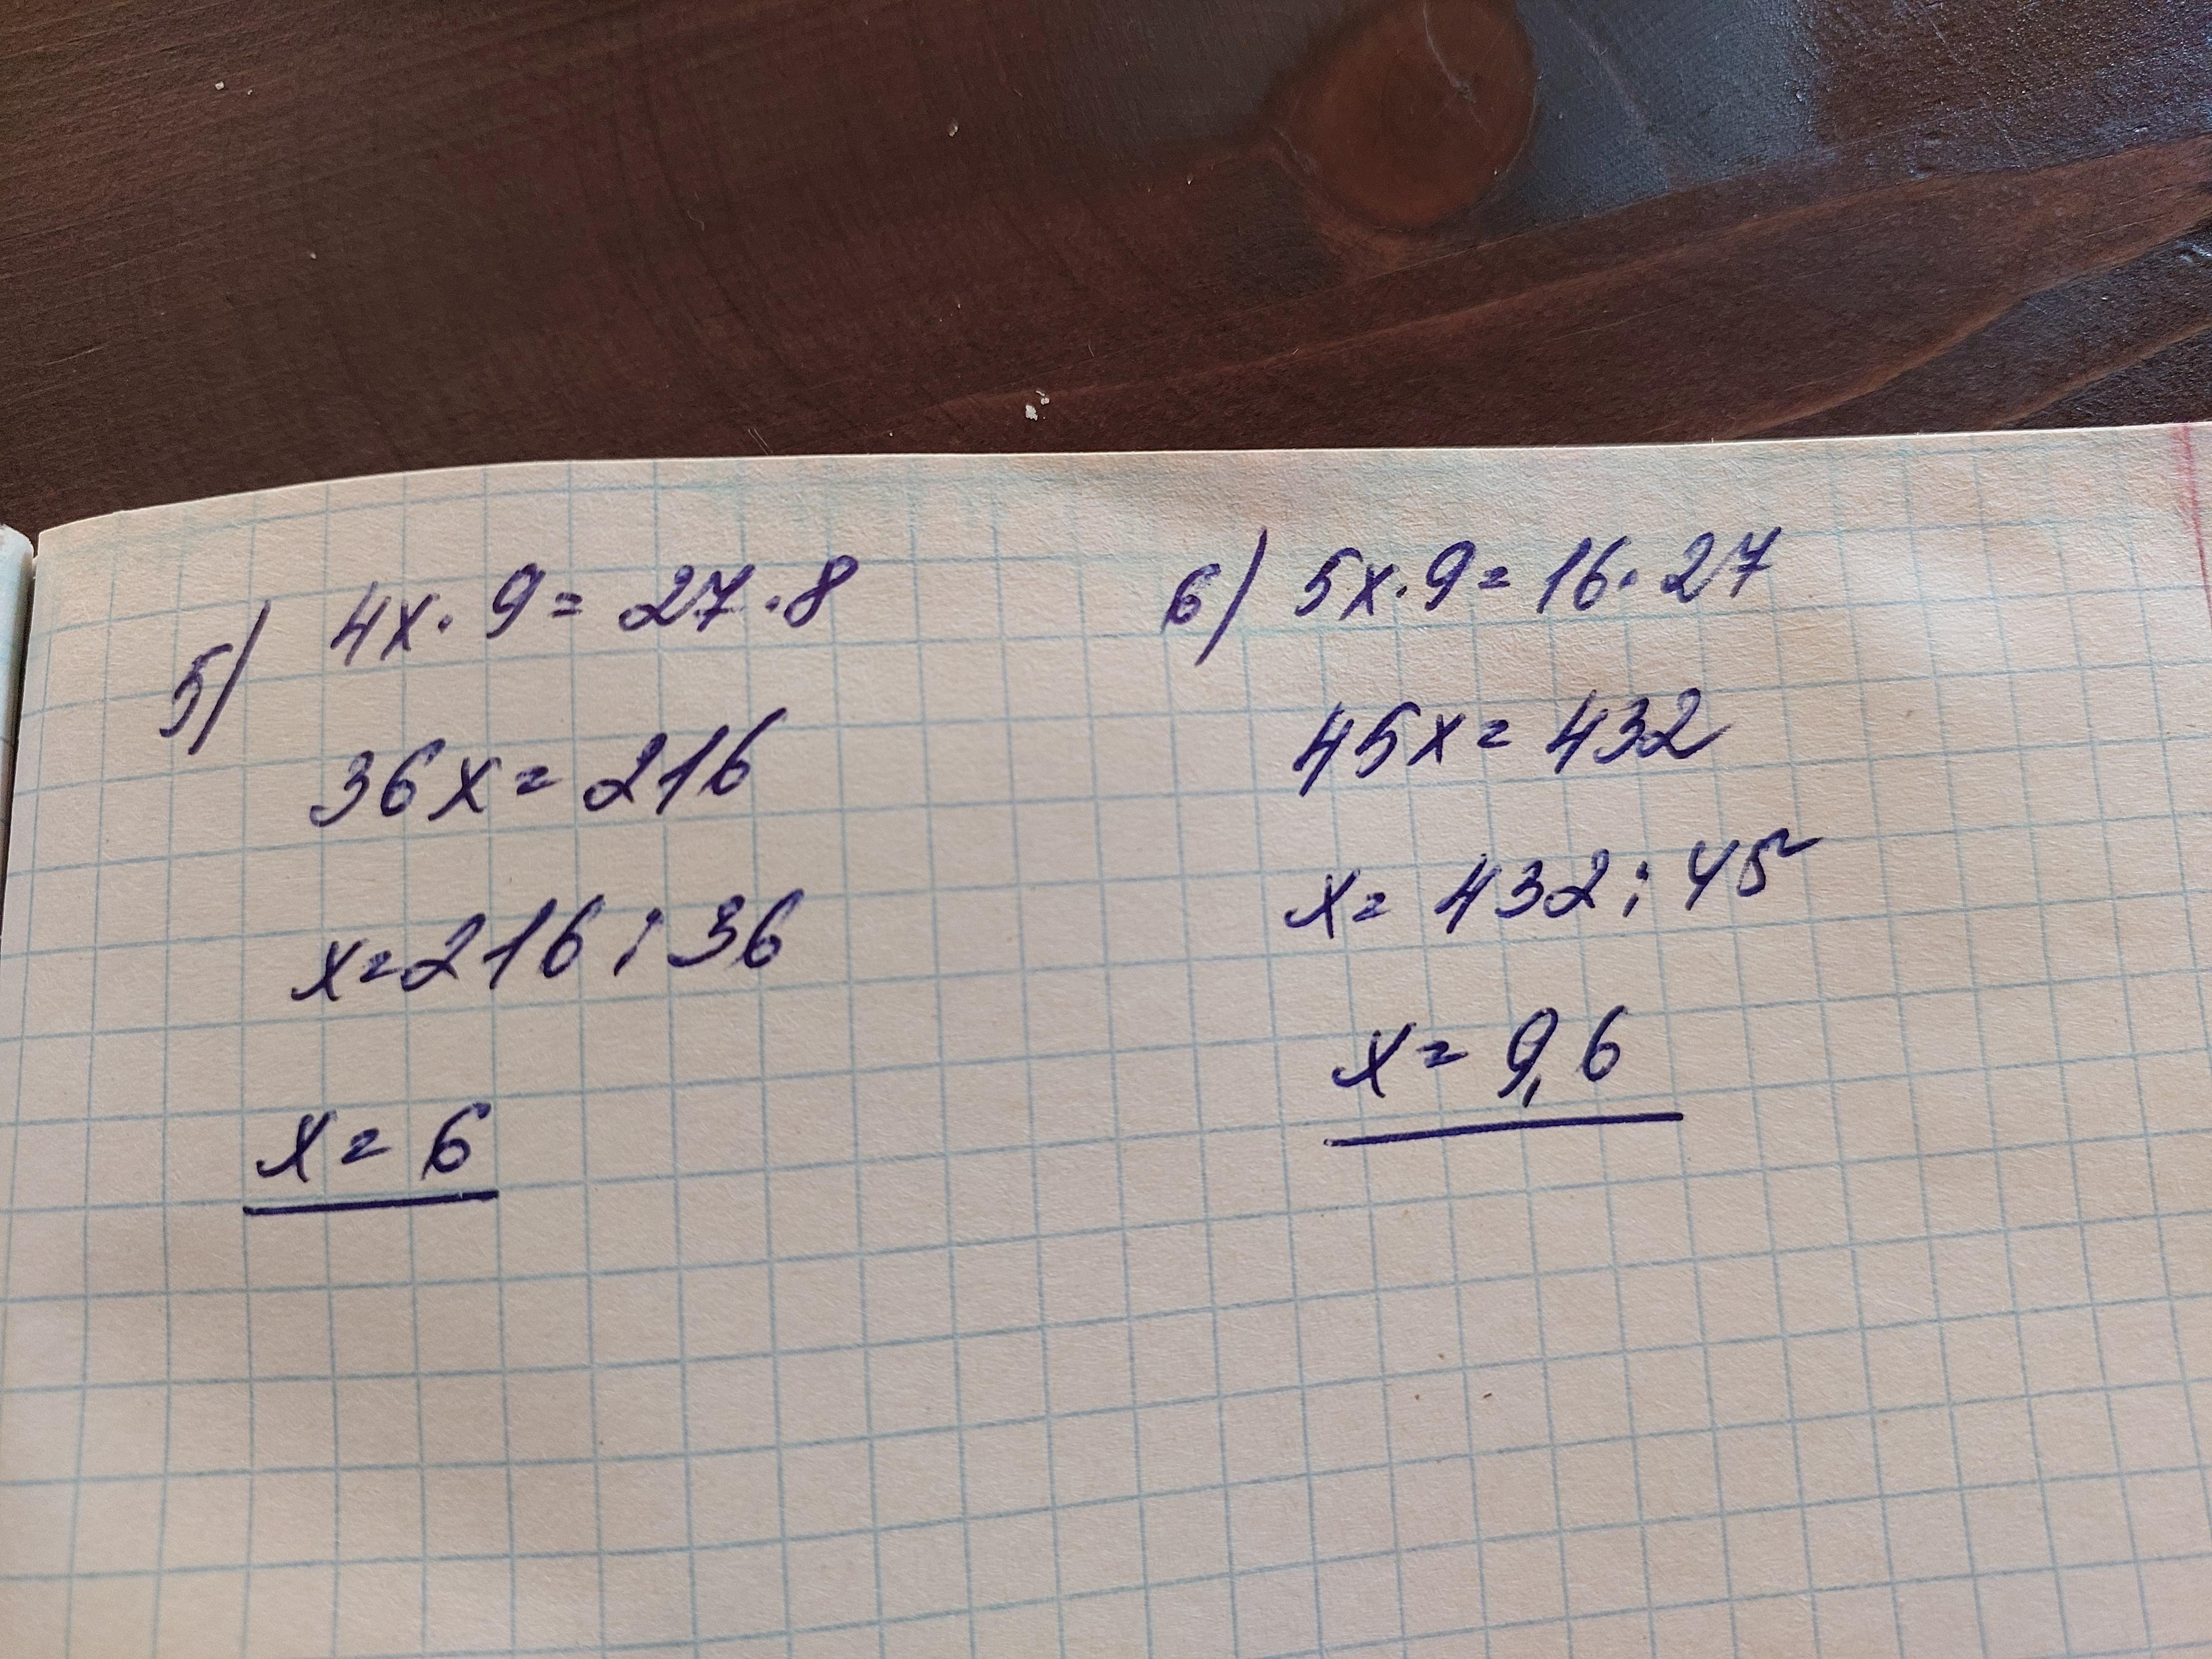 5) 4x· 9= 27·8
36x= 216
x=216 : 36
x= 6
6) 5x·9= 16·27
45x= 432
x= 432 : 45
x= 9,6